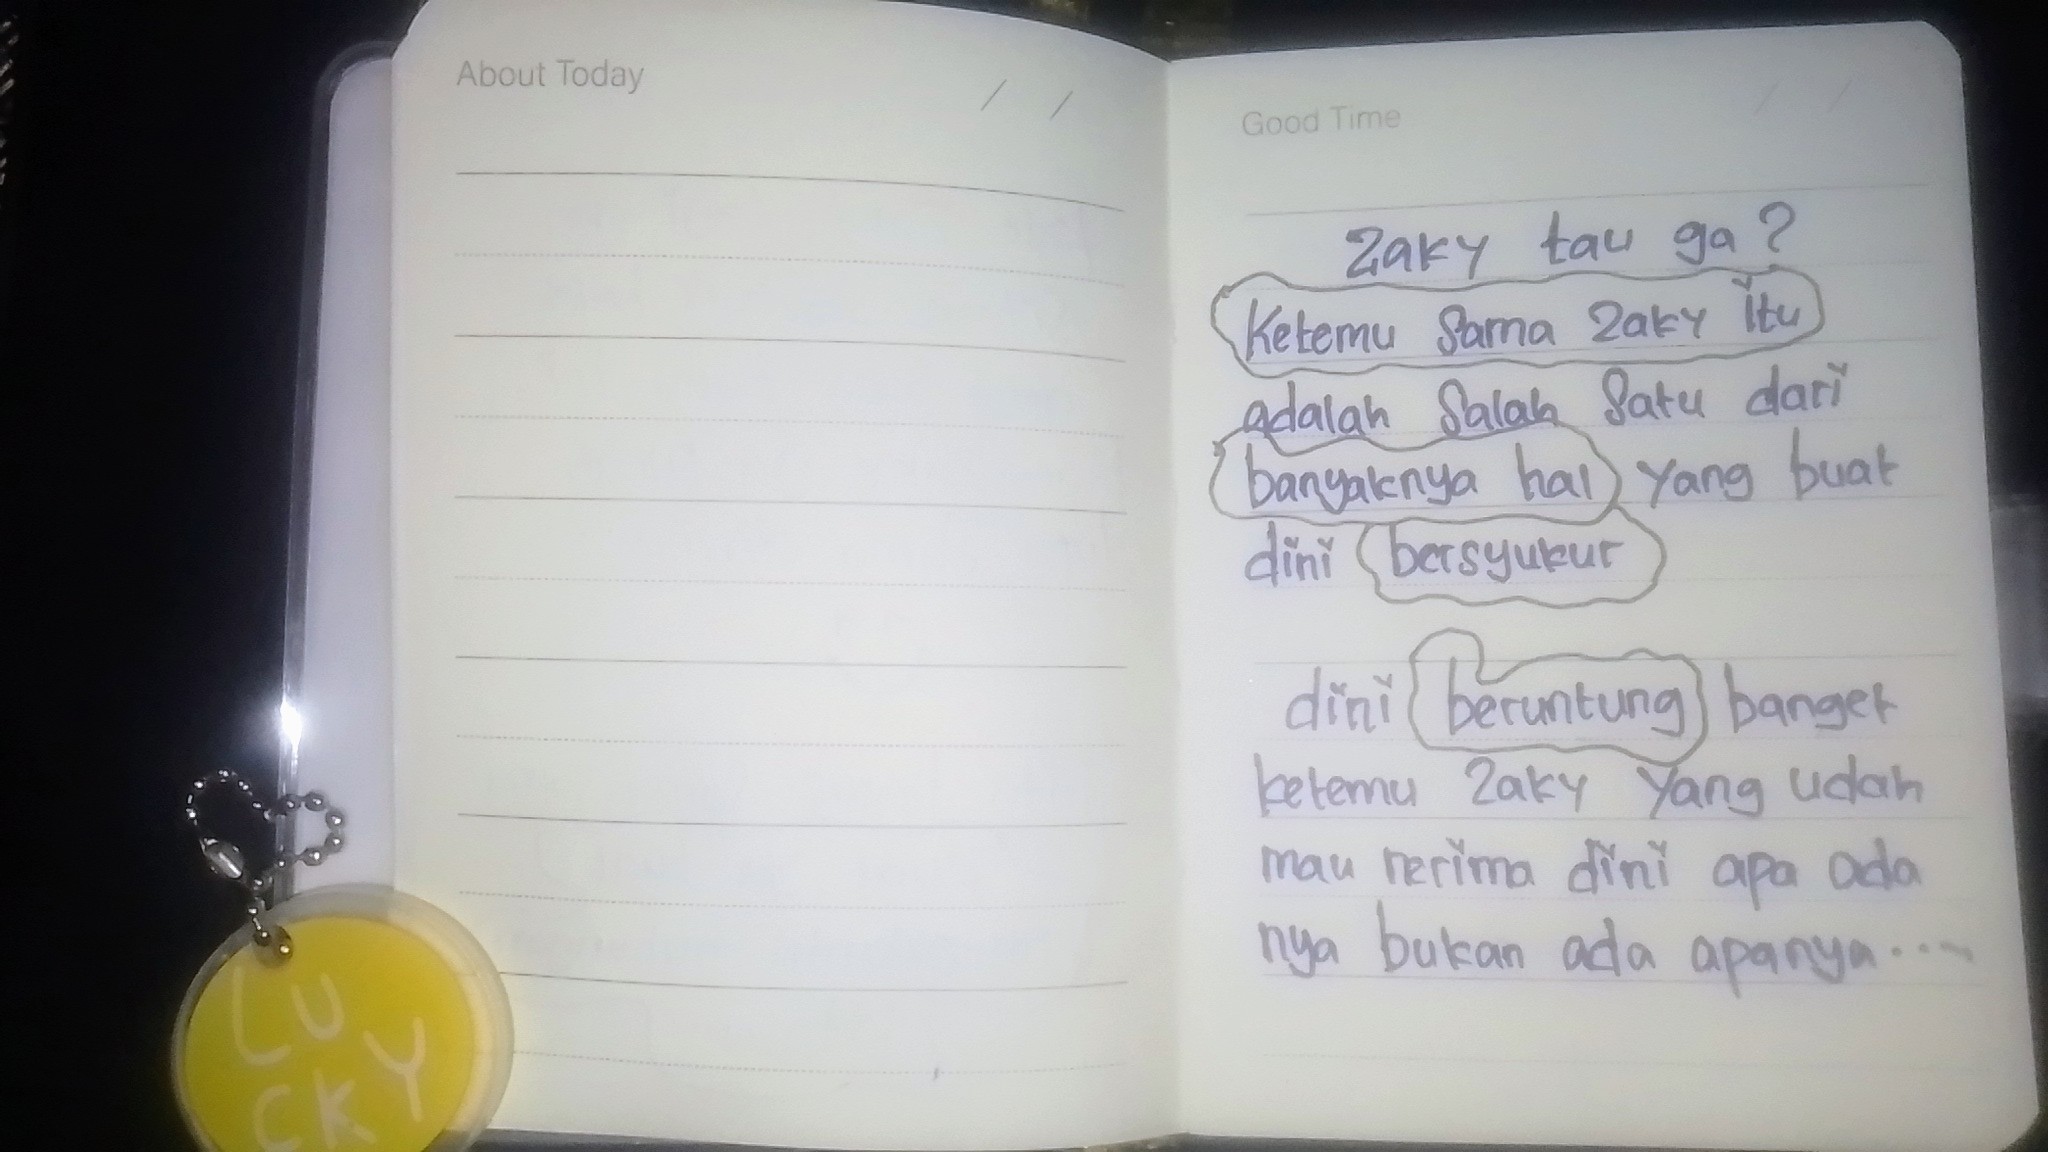 About Today / /
Good Time / /
Zaky tau ga?
Ketemu Sama Zaky itu
adalah Salah Satu dari
banyaknya hal yang buat
dini bersyukur
dini beruntung banget
ketemu Zaky Yang udah
mau nerima dini apa ada
nya bukan ada apanya....
LU
CKY